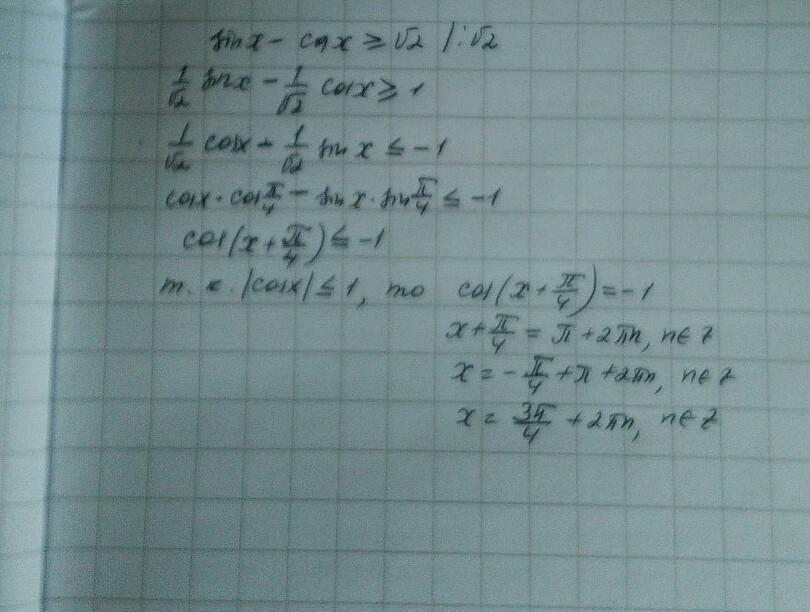 sin x - cos x ≥ √2 /:√2
1/√2 sin x - 1/√2 cos x ≥ 1
1/√2 cos x - 1/√2 sin x ≤ -1
cos x · cos π/4 - sin x · sin π/4 ≤ -1
cos(x + π/4) ≤ -1
т. к. |cos x| ≤ 1, то cos(x + π/4) = -1
x + π/4 = π + 2πn, n∈Z
x = -π/4 + π + 2πn, n∈Z
x = 3π/4 + 2πn, n∈Z